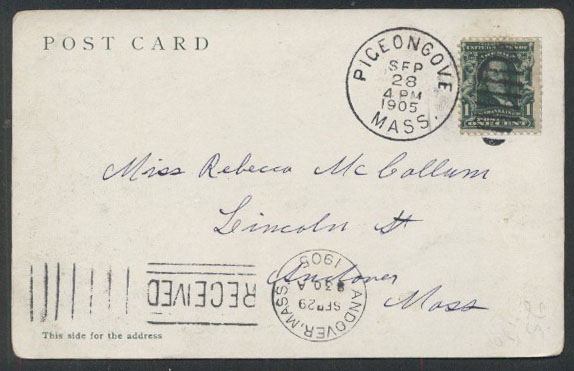 POST CARD
PIGEONCOVE
SEP
28
4 PM
1905
MASS.
UNITED STATES OF AMERICA
1 1
ONE CENT
Miss Rebecca McCollum
Lincoln St
Andover
Mass
RECEIVED
ANDOVER, MASS
SEP 29
9 30 A
1905
This side for the address